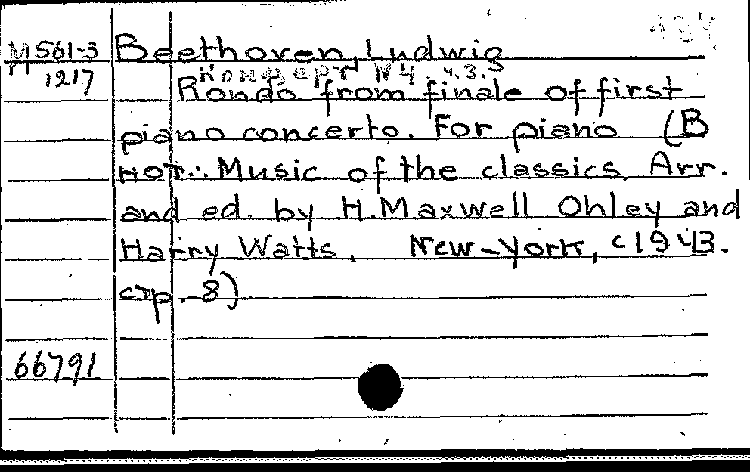 М 561-3 Beethoven, Ludwig
1217 Концерт N4 ч.3.
Rondo from finale of first
piano concerto. For piano (В
нот.: Music of the classics. Arr.
and ed. by H. Maxwell Ohley and
Harry Watts. New-York, c1943.
стр. 8)
66791